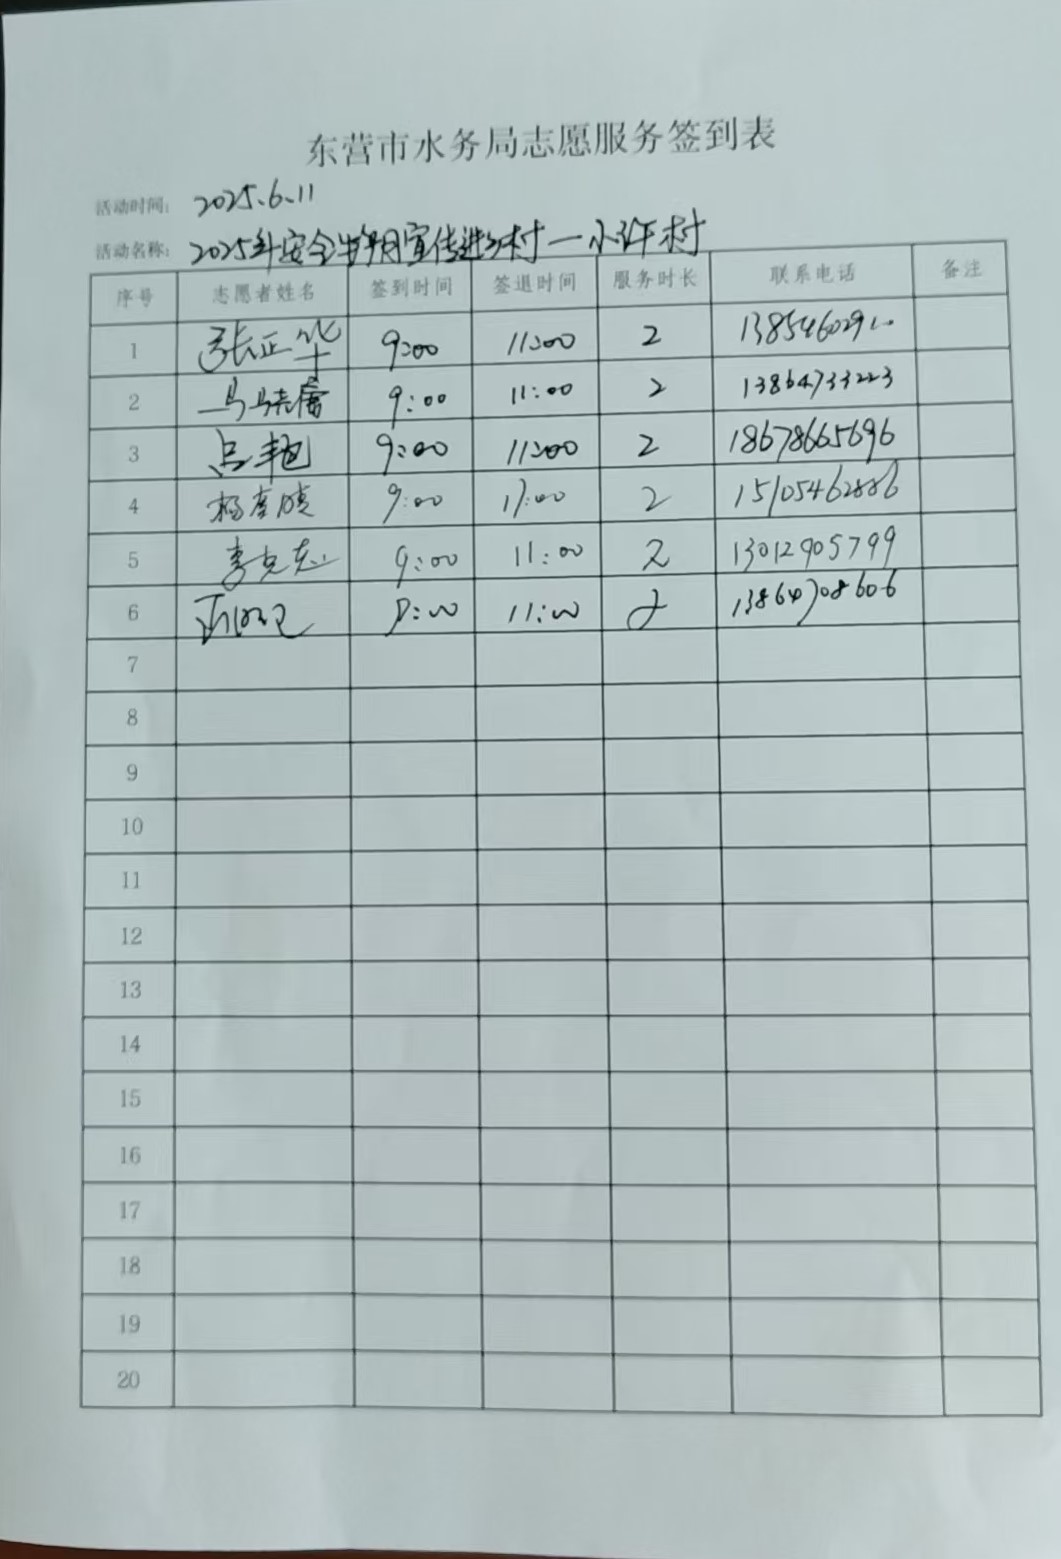 东营市水务局志愿服务签到表
活动时间: 2025.6.11
活动名称: 2025年安全生产月宣传进乡村—小许村
序号 志愿者姓名 签到时间 签退时间 服务时长 联系电话 备注
1 张正华 9:00 11:00 2 138546029
2 马 9:00 11:00 2 13864733223
3 吕艳 9:00 11:00 2 18678665696
4 杨 9:00 11:00 2 15105462886
5 李克志 9:00 11:00 2 13012905799
6 9:00 11:00 2 13864708606
7
8
9
10
11
12
13
14
15
16
17
18
19
20